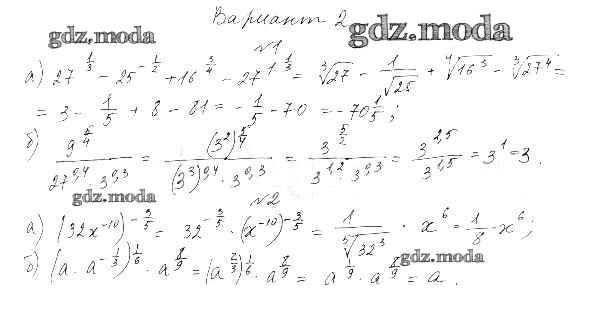 Вариант 2
gdz.moda
gdz.moda
№1
а) 27^{1/3} - 25^{-1/2} + 16^{3/4} - 27^{1 1/3} = ∛27 - 1/√25 + ∜16³ - ∛27⁴ =
= 3 - 1/5 + 8 - 81 = - 1/5 - 70 = -70 1/5;
б) 9^{5/4} / (27^{0,4} · 3^{0,3}) = (3²)^{5/4} / ((3³)^{0,4} · 3^{0,3}) = 3^{5/2} / (3^{1,2} · 3^{0,3}) = 3^{2,5} / 3^{1,5} = 3¹ = 3.
gdz.moda
№2
а) (32x^{-10})^{-3/5} = 32^{-3/5} · (x^{-10})^{-3/5} = 1/⁵√32³ · x⁶ = 1/8 · x⁶;
gdz.moda
б) (a · a^{-1/3})^{1/6} · a^{8/9} = (a^{2/3})^{1/6} · a^{8/9} = a^{1/9} · a^{8/9} = a.